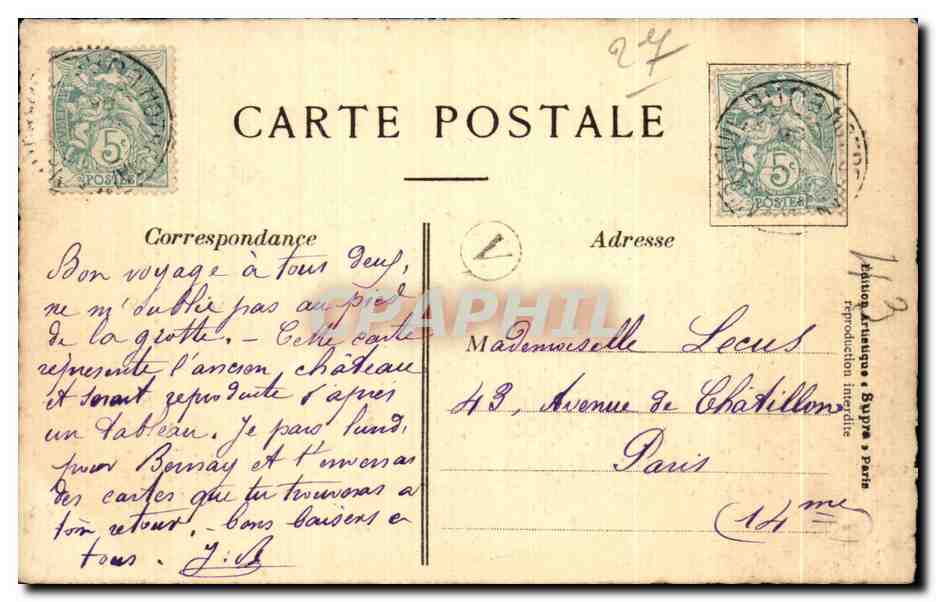 27
CARTE POSTALE
5c
POSTES
5c
POSTES
Correspondance
Bon voyage à tous deux,
ne m'oublie pas au pied
de la grotte. - Cette carte
représente l'ancien château
et serait reproduite d'après
un tableau. Je pars lundi
pour Bernay et t'enverrai
des cartes que tu trouveras a
ton retour. - bons baisers a
tous.
V
Adresse
Mademoiselle Lecus
43, Avenue de Chatillon
Paris
(14me)
43
Edition Artistique « Supra » Paris
reproduction interdite
CPAPHIL